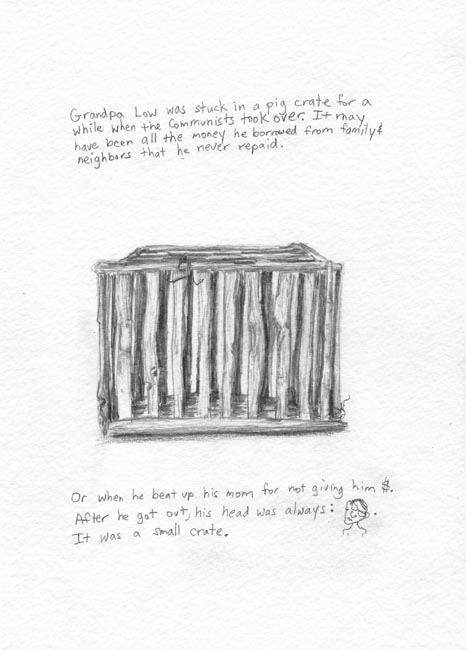 Grandpa Low was stuck in a pig crate for a
while when the Communists took over. It may
have been all the money he borrowed from family &
neighbors that he never repaid.
Or when he beat up his mom for not giving him $.
After he got out, his head was always: .
It was a small crate.